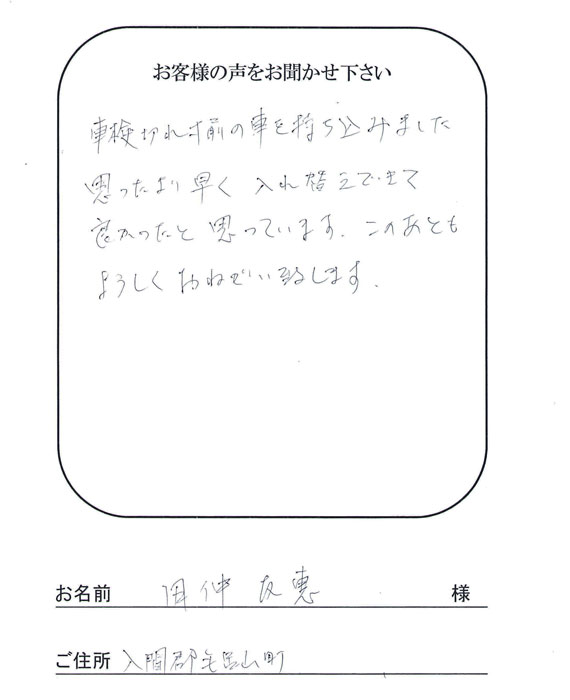 お客様の声をお聞かせ下さい
車検切れ寸前の車を持ち込みました
思ったより早く 入れ替えできて
良かったと思っています. このあとも
よろしくおねがい致します.
お名前 田仲 友恵 様
ご住所 入間郡毛呂山町